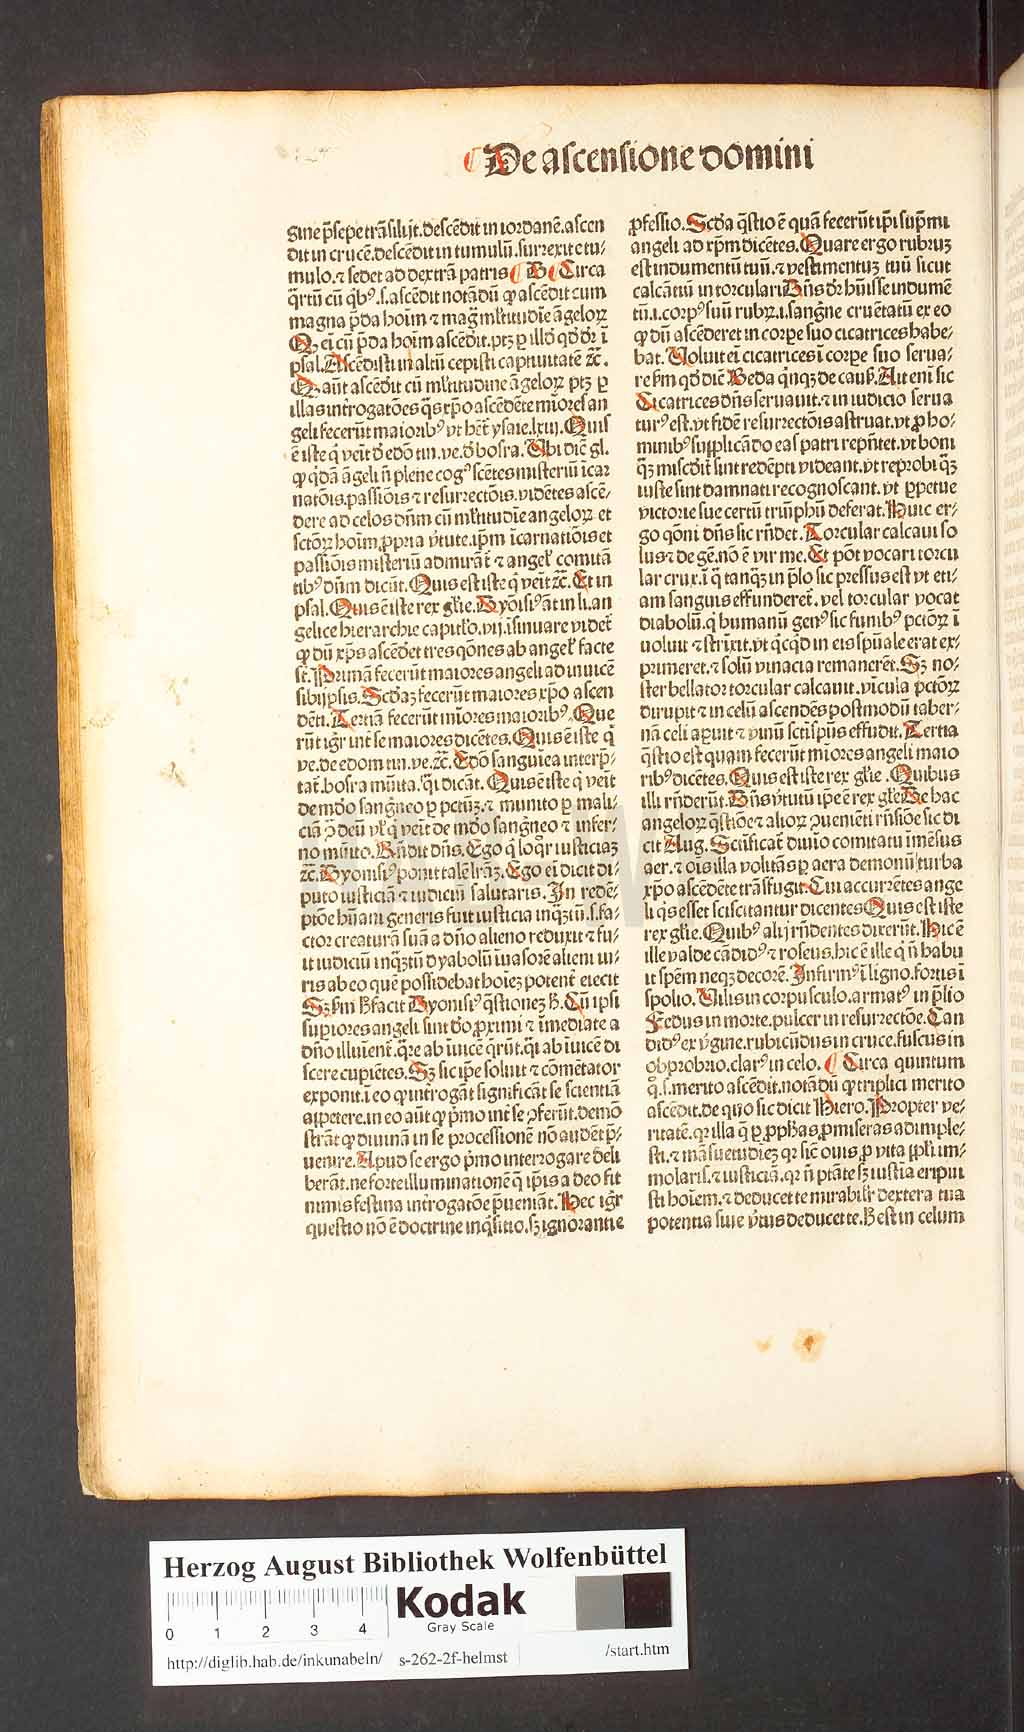 De ascensione domini
gine p̄sepe trāsilijt. descēdit in iordanē. ascen
dit in crucē. descēdit in tumulū. surrexit e tu-
mulo. ⁊ sedet ad dextrā patris B Circa
q̄rtū cū qᵇꝰ .s. ascēdit notādū ꝙ ascēdit cum
magna p̄da hoim̄ ⁊ mag̃ ml̓titudīe āgeloꝝ
Qꝫ ei cū p̄da hoim̄ ascēdit. ptꝫ ꝑ illḋ qḋ dr̄ ī
psal. Ascēdisti in altū cepisti captiuitatē ⁊c̄.
Qꝫ aūt ascēdit cū ml̓titudine āgeloꝝ ptꝫ ꝑ
illas int̓rogatōes q̄s xp̄o ascēdēte mīores an
geli fecerūt maioribꝰ vt hēt̓ ysaie. lxiij. Quis
ē iste q̇ veīt d̓ edō tin. ve. d̓ bosra. Ubi dīc gl̓.
ꝙ q̇dā āgeli n̄ plene cogꝰscētes misteriū īcar
natōis. passiōis ⁊ resurrectōis. vidētes ascē-
dere ad celos dn̄m cū ml̓titudīe angeloꝝ et
sctōꝝ hoim̄. ꝓpria v̓tute. ip̄m īcarnatiōis et
passiōis misteriū admirāt̓ ⁊ angel̓ comitā
tibꝰ dn̄m dicūt. Quis est iste q̇ veīt ⁊c̄. Et in
psal. Quis ē iste rex gl̓ie. Dyōisiꝰ āt in li. an
gelice hierarchie capitl̓o. vij. īsinuare videt̓
ꝙ dū xp̄s ascēdet tres q̄ones ab angel̓ facte
st̄. Primā fecerūt maiores angeli ad inuicē
sibijpsis. Scḋaꝫ fecerūt maiores xp̄o ascen
dēti. Tertiā fecerūt mīores maioribꝰ. Que
rūt igr̄ int̓ se maiores dicētes. Quis ē iste q̇
ve. de edom tin. ve. ⁊c̄. Edō sanguinea interp̄-
tat̓. bosra mūita. q̄si dicāt. Quis ē iste q̇ veīt
de mḋo sang̃neo ꝑ pctm̄. ⁊ munito ꝑ mali-
ciā ꝯ deū vl̓ q̇ veīt de mḋo sang̃neo ⁊ infer-
no mūito. Rn̄dit dn̄s. Ego q̇ loq̊r iusticiaꝫ
⁊c̄. Dyonisiꝰ ponit talē lr̄aꝫ. Ego ei dicit di-
puto iusticiā ⁊ iudiciū salutaris. In redē-
ptōe hūani generis fuit iusticia inq̄ꝫtū .s. fa-
ctor creaturā suā a dn̄o alieno reduxit ⁊ fu-
it iudiciū inq̄ꝫtū dyabolū īuasorē alieni iu-
ris ab eo quē possidebat hoiēꝫ potent̓ eiecit
Sꝫ ẜm ħ facit Dyonisiꝰ q̄stionēꝫ ħ. Cū ipsi
supiores angeli sint dō ꝓximi ⁊ īmediate a
dn̄o illuīent̓. q̄re ab īuicē q̄rūt. q̄si ab īuicē di
scere cupiētes. Sꝫ sic ipe soluit ⁊ cōmētator
exponit. ī eo ꝙ introgāt significāt se scientiā
appetere. in eo aūt ꝙ p̄mo int̓ se ꝯferūt. demo
strāt ꝙ diuinā in se processionē nō audēt p̄-
uenire. Apud se ergo p̄mo interrogare deli
berāt. ne forte illuminationē q̄ ip̄is a deo fit
nimis festina int̓rogatōe p̄ueniāt. Hec igr̄
questio nō ē doctrine inq̇sitio. sꝫ ignorantie
ꝓfessio. Scḋa q̄stio ē quā fecerūt ip̄i sup̄mi
angeli ad xp̄m dicētes. Quare ergo rubrūꝫ
est indumentū tuū. ⁊ vestimentuꝫ tuū sicut
calcātiū in torculari Dn̄s dr̄ hūisse indumē
tū .i. corpꝰ suū rubꝝ .i. sang̃ne cruētatū ex eo
ꝙ dū ascēderet in corpe suo cicatrices habe-
bat. Voluit ei cicatrices ī corpe suo serua-
re ẜm qḋ dīc Beda q̇nqꝫ de causꝭ. Ait enī sic
Cicatrices dn̄s seruauit. ⁊ in iudicio serua
turꝰ est. vt fidē resurrectōis astruat. vt ꝓ ho-
minibꝰ supplicādo eas patri rep̄ntet. vt boni
q̄ꝫ misc̄dit̓ sint redēpti videant. vt reprobi q̄ꝫ
iuste sint damnati recognoscant. vt ꝑpetue
victorie sue certū triūphū deferat. Huic er-
go q̄oni dn̄s sic rn̄det. Torcular calcaui so
lus ⁊ de gē. nō ē vir me. Et pōt vocari torcu
lar crux. ī q̄ tanq̄ꝫ in p̄lo sic pressus est vt eti-
am sanguis effunderet̓. vel torcular vocat
diabolū. q̇ humanū genꝰ sic funibꝰ pctōꝝ ī
uoluit ⁊ strīxit. vt q̇cq̇d in eis spūale erat ex-
primeret. ⁊ solū vinacia remanerēt. Sꝫ no-
ster bellator torcular calcauit. vīcula pctōꝝ
dirupit ⁊ in celū ascendēs postmodū taber-
nā celi aꝑuit ⁊ vinū sct̄ispūs effudit. Tertia
q̄stio est quam fecerūt mīores angeli maio
ribꝰ dicētes. Quis est iste rex gl̓ie. Quibus
illi rn̄derūt. Dn̄s v̓tutū ipe ē rex gl̓ie De hac
angeloꝝ q̄stiōe ⁊ alioꝝ ꝯuenīeti rn̄siōe sic di
cit Aug. Sctificat̓ diuīo comitatu īmēsus
aer. ⁊ ōis illa volitās ꝑ aera demonū turba
xp̄o ascēdēte trāsfugit. Cui accurrētes ange
li q̇s esset sciscitantur dicentes Quis est iste
rex gl̓ie. Quibꝰ alij rn̄dentes dixerūt. Hic ē
ille valde cādidꝰ ⁊ roseus. hic ē ille q̇ n̄ habu
it spēm neqꝫ decorē. Infirmꝰ ī ligno. fortis ī
spolio. Vilis in corpusculo. armatꝰ in p̄lio
Fedus in morte. pulcer in resurrectōe. Can
didꝰ ex v̓gine. rubicūdus in cruce. fuscus in
obprobrio. clarꝰ in celo. Circa quintum
q̊ .s. merito ascēdit. notādū ꝙ triplici merito
ascēdit. de quo sic dicit Hiero. Propter ve-
ritatē. qꝛ illa q̄ ꝑ ꝓphas ꝓmiseras adimple-
sti. ⁊ māsuetudiēꝫ qꝛ sic̄ ouis ꝓ vita ppl̓i im-
molarisꝭ. ⁊ iusticiā. qꝛ n̄ ptāte sꝫ iustīa eripui
sti hoiem. ⁊ deducet te mirabilr̄ dextera tua
potentia siue v̓tus deducet te. ħ est in celum
Herzog August Bibliothek Wolfenbüttel
0 1 2 3 4
Kodak
Gray Scale
http://diglib.hab.de/inkunabeln/ s-262-2f-helmst /start.htm